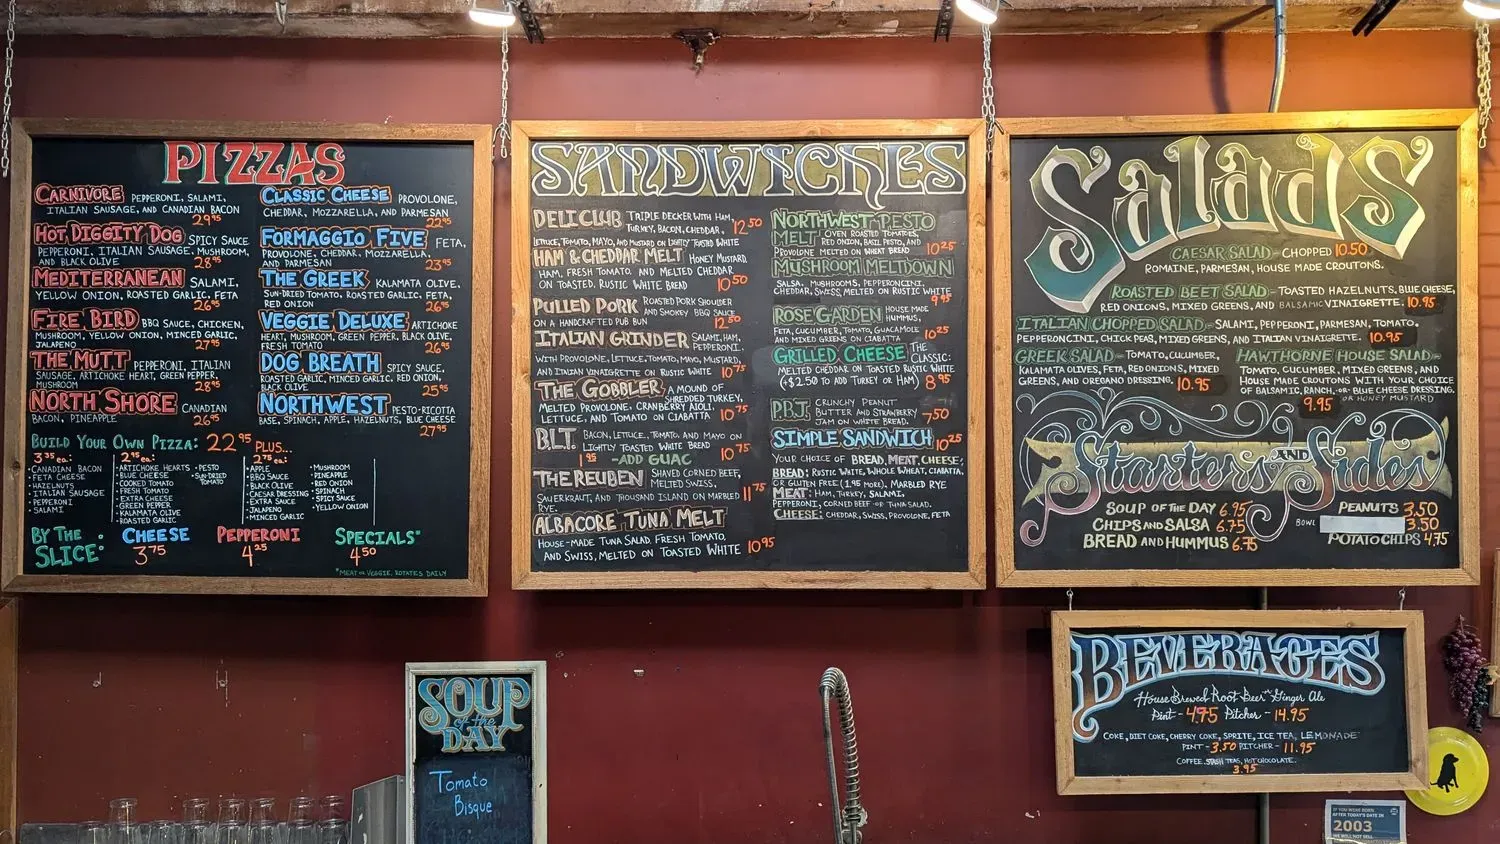 PIZZAS
CARNIVORE PEPPERONI, SALAMI,
ITALIAN SAUSAGE, AND CANADIAN BACON
29.95
HOT DIGGITY DOG SPICY SAUCE
PEPPERONI, ITALIAN SAUSAGE, MUSHROOM,
AND BLACK OLIVE 28.95
MEDITERRANEAN SALAMI,
YELLOW ONION, ROASTED GARLIC, FETA
26.95
FIRE BIRD BBQ SAUCE, CHICKEN,
MUSHROOM, YELLOW ONION, MINCED GARLIC,
JALAPENO 27.95
THE MUTT PEPPERONI, ITALIAN
SAUSAGE, ARTICHOKE HEART, GREEN PEPPER,
MUSHROOM 28.95
NORTH SHORE CANADIAN
BACON, PINEAPPLE 26.95
CLASSIC CHEESE PROVOLONE,
CHEDDAR, MOZZARELLA, AND PARMESAN
22.95
FORMAGGIO FIVE FETA,
PROVOLONE, CHEDDAR, MOZZARELLA,
AND PARMESAN 23.95
THE GREEK KALAMATA OLIVE,
SUN-DRIED TOMATO, ROASTED GARLIC, FETA,
RED ONION 26.95
VEGGIE DELUXE ARTICHOKE
HEART, MUSHROOM, GREEN PEPPER, BLACK OLIVE,
FRESH TOMATO 26.95
DOG BREATH SPICY SAUCE,
ROASTED GARLIC, MINCED GARLIC, RED ONION,
BLACK OLIVE 25.95
NORTHWEST PESTO-RICOTTA
BASE, SPINACH, APPLE, HAZELNUTS, BLUE CHEESE
27.95
BUILD YOUR OWN PIZZA: 22.95 PLUS...
3.35 ea:
•CANADIAN BACON
•FETA CHEESE
•HAZELNUTS
•ITALIAN SAUSAGE
•PEPPERONI
•SALAMI
2.95 ea:
•ARTICHOKE HEARTS
•BLUE CHEESE
•COOKED TOMATO
•FRESH TOMATO
•EXTRA CHEESE
•GREEN PEPPER
•KALAMATA OLIVE
•ROASTED GARLIC
•PESTO
•SUN-DRIED
TOMATO
2.75 ea:
•APPLE
•BBQ SAUCE
•BLACK OLIVE
•CAESAR DRESSING
•EXTRA SAUCE
•JALAPENO
•MINCED GARLIC
•MUSHROOM
•PINEAPPLE
•RED ONION
•SPINACH
•SPICY SAUCE
•YELLOW ONION
BY THE SLICE:
CHEESE 3.75
PEPPERONI 4.25
SPECIALS* 4.50
*MEAT OR VEGGIE, ROTATES DAILY
SANDWICHES
DELI CLUB TRIPLE DECKER WITH HAM,
TURKEY, BACON, CHEDDAR, 12.50
LETTUCE, TOMATO, MAYO, AND MUSTARD ON LIGHTLY TOASTED WHITE
HAM & CHEDDAR MELT HONEY MUSTARD,
HAM, FRESH TOMATO, AND MELTED CHEDDAR
ON TOASTED, RUSTIC WHITE BREAD 10.50
PULLED PORK ROASTED PORK SHOULDER
AND SMOKEY BBQ SAUCE
ON A HANDCRAFTED PUB BUN 12.50
ITALIAN GRINDER SALAMI, HAM,
PEPPERONI,
WITH PROVOLONE, LETTUCE, TOMATO, MAYO, MUSTARD,
AND ITALIAN VINAIGRETTE ON RUSTIC WHITE 10.75
THE GOBBLER A MOUND OF
SHREDDED TURKEY,
MELTED PROVOLONE, CRANBERRY AIOLI,
LETTUCE, AND TOMATO ON CIABATTA 10.75
B.L.T. BACON, LETTUCE, TOMATO, AND MAYO ON
LIGHTLY TOASTED WHITE BREAD 10.75
1.95 -ADD GUAC
THE REUBEN SHAVED CORNED BEEF,
MELTED SWISS,
SAUERKRAUT, AND THOUSAND ISLAND ON MARBLED 11.75
RYE.
ALBACORE TUNA MELT
HOUSE-MADE TUNA SALAD FRESH TOMATO,
AND SWISS, MELTED ON TOASTED WHITE 10.95
NORTHWEST PESTO
MELT OVEN ROASTED TOMATOES,
RED ONION, BASIL PESTO, AND
PROVOLONE MELTED ON WHEAT BREAD 10.25
MUSHROOM MELTDOWN
SALSA, MUSHROOMS, PEPPERONCINI,
CHEDDAR, SWISS, MELTED ON RUSTIC WHITE
9.95
ROSE GARDEN HOUSE MADE
HUMMUS,
FETA, CUCUMBER, TOMATO, GUACAMOLE
AND MIXED GREENS ON CIABATTA 10.25
GRILLED CHEESE THE
CLASSIC:
MELTED CHEDDAR ON TOASTED RUSTIC WHITE
(+$2.50 TO ADD TURKEY OR HAM) 8.95
PBJ CRUNCHY PEANUT
BUTTER AND STRAWBERRY
JAM ON WHITE BREAD. 7.50
SIMPLE SANDWICH 10.25
YOUR CHOICE OF BREAD, MEAT, CHEESE,
BREAD: RUSTIC WHITE, WHOLE WHEAT, CIABATTA,
OR GLUTEN FREE (1.95 MORE), MARBLED RYE
MEAT: HAM, TURKEY, SALAMI,
PEPPERONI, CORNED BEEF OR TUNA SALAD.
CHEESE: CHEDDAR, SWISS, PROVOLONE, FETA
Salads
CAESAR SALAD - CHOPPED 10.50
ROMAINE, PARMESAN, HOUSE MADE CROUTONS.
ROASTED BEET SALAD - TOASTED HAZELNUTS, BLUE CHEESE,
RED ONIONS, MIXED GREENS, AND BALSAMIC VINAIGRETTE. 10.95
ITALIAN CHOPPED SALAD - SALAMI, PEPPERONI, PARMESAN, TOMATO,
PEPPERONCINI, CHICK PEAS, MIXED GREENS, AND ITALIAN VINAIGRETTE. 10.95
GREEK SALAD - TOMATO, CUCUMBER,
KALAMATA OLIVES, FETA, RED ONIONS, MIXED
GREENS, AND OREGANO DRESSING. 10.95
HAWTHORNE HOUSE SALAD -
TOMATO, CUCUMBER, MIXED GREENS, AND
HOUSE MADE CROUTONS WITH YOUR CHOICE
OF BALSAMIC, RANCH, OR BLUE CHEESE DRESSING.
9.95 OR HONEY MUSTARD
Starters AND Sides
SOUP OF THE DAY 6.95
CHIPS AND SALSA 6.75
BREAD AND HUMMUS 6.75
PEANUTS 3.50
BOWL 3.50
POTATO CHIPS 4.75
BEVERAGES
House Brewed Root Beer Ginger Ale
Pint - 4.75 Pitcher - 14.95
COKE, DIET COKE, CHERRY COKE, SPRITE, ICE TEA, LEMONADE
PINT - 3.50 PITCHER - 11.95
COFFEE, STASH TEAS, HOT CHOCOLATE.
3.95
SOUP
of the
DAY
Tomato
Bisque
IF YOU WERE BORN
AFTER TODAY'S DATE IN
2003
WE WILL NOT SELL